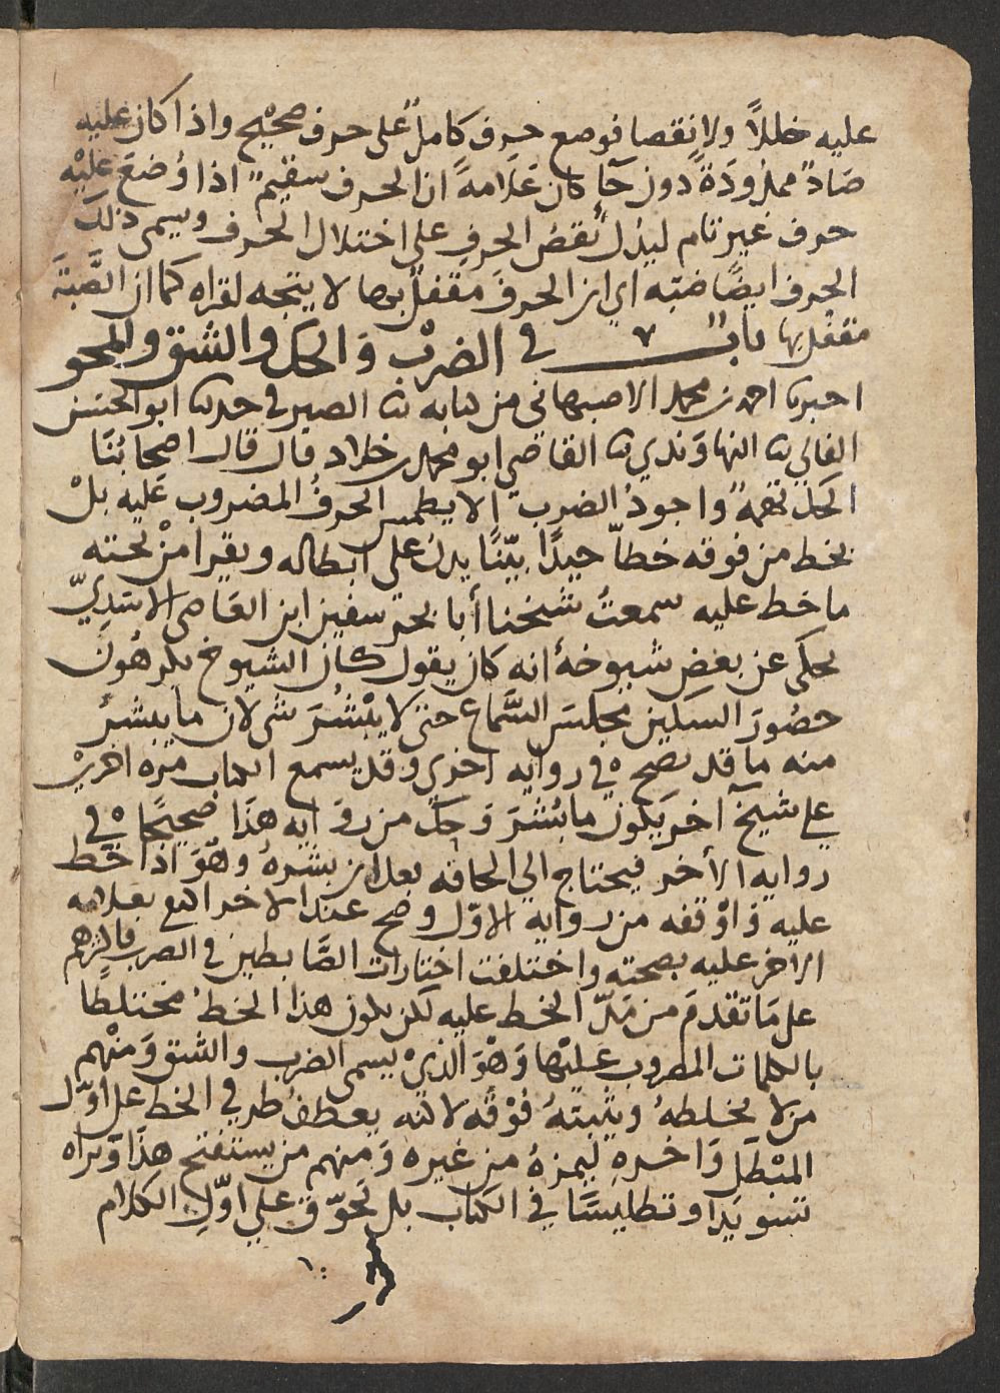 عليه خللاً ولا نقصا فوضع حرف كامل على حرف صحيح واذا كان عليه
صاد ممدودة دون حآ كان علامة ان الحرف سقيم اذا وضع عليه
حرف غير تام ليدل نقص الحرف على اختلال الحرف ويسمى ذلك
الحرف ايضا ضبه اي ان الحرف مقفل بها لا يتجه لقراه كما ان الضبة
مقفل بها باب في الضرب والحك والشق والمحو
اخبرنا احمد بن محمد الاصبهاني من كتابه نا الصيرفي حدثنا ابو الحسن
الفالي نا النهاوندي نا القاضي ابو محمد بن خلاد قال قال اصحابنا
الحك تهمة واجود الضرب الا يطمس الحرف المضروب عليه بل
يخط من فوقه خطا جيدا بينا يدل على ابطاله ويقرا من تحته
ما خط عليه سمعت شيخنا أبا بحر سفين ابن العاصي الاسدي
يحكي عن بعض شيوخه انه كان يقول كان الشيوخ يكرهون
حضور السكين مجلس السماع حتى لا يبشر شي لان ما يبشر
منه ما قد يصح في روايه اخرى وقد يسمع الكتاب مره اخرى
على شيخ آخر يكون ما بشر وحك من روايه هذا صحيحا في
روايه الأخر فيحتاج الي الحاقه بعد ان بشره وهو اذا خط
عليه واوقفه من روايه الاول وصح عند الاخر اكتفى بعلامه
الاخر عليه بصحته واختلفت اختيارات الضابطين في الضرب فاكثرهم
على ما تقدم من مد الخط عليه لكن يكون هذا الخط مختلطا
بالكلمات المضروب عليها وهو الذي يسمى الضرب والشق ومنهم
من لا يخلطه ويثبته فوقه لاكنه يعطف طرفي الخط على اول
المبطل واخره ليميزه من غيره ومنهم من يستقبح هذا ويراه
تسويدا وتطليسا في الكتاب بل يحوق على اول الكلام